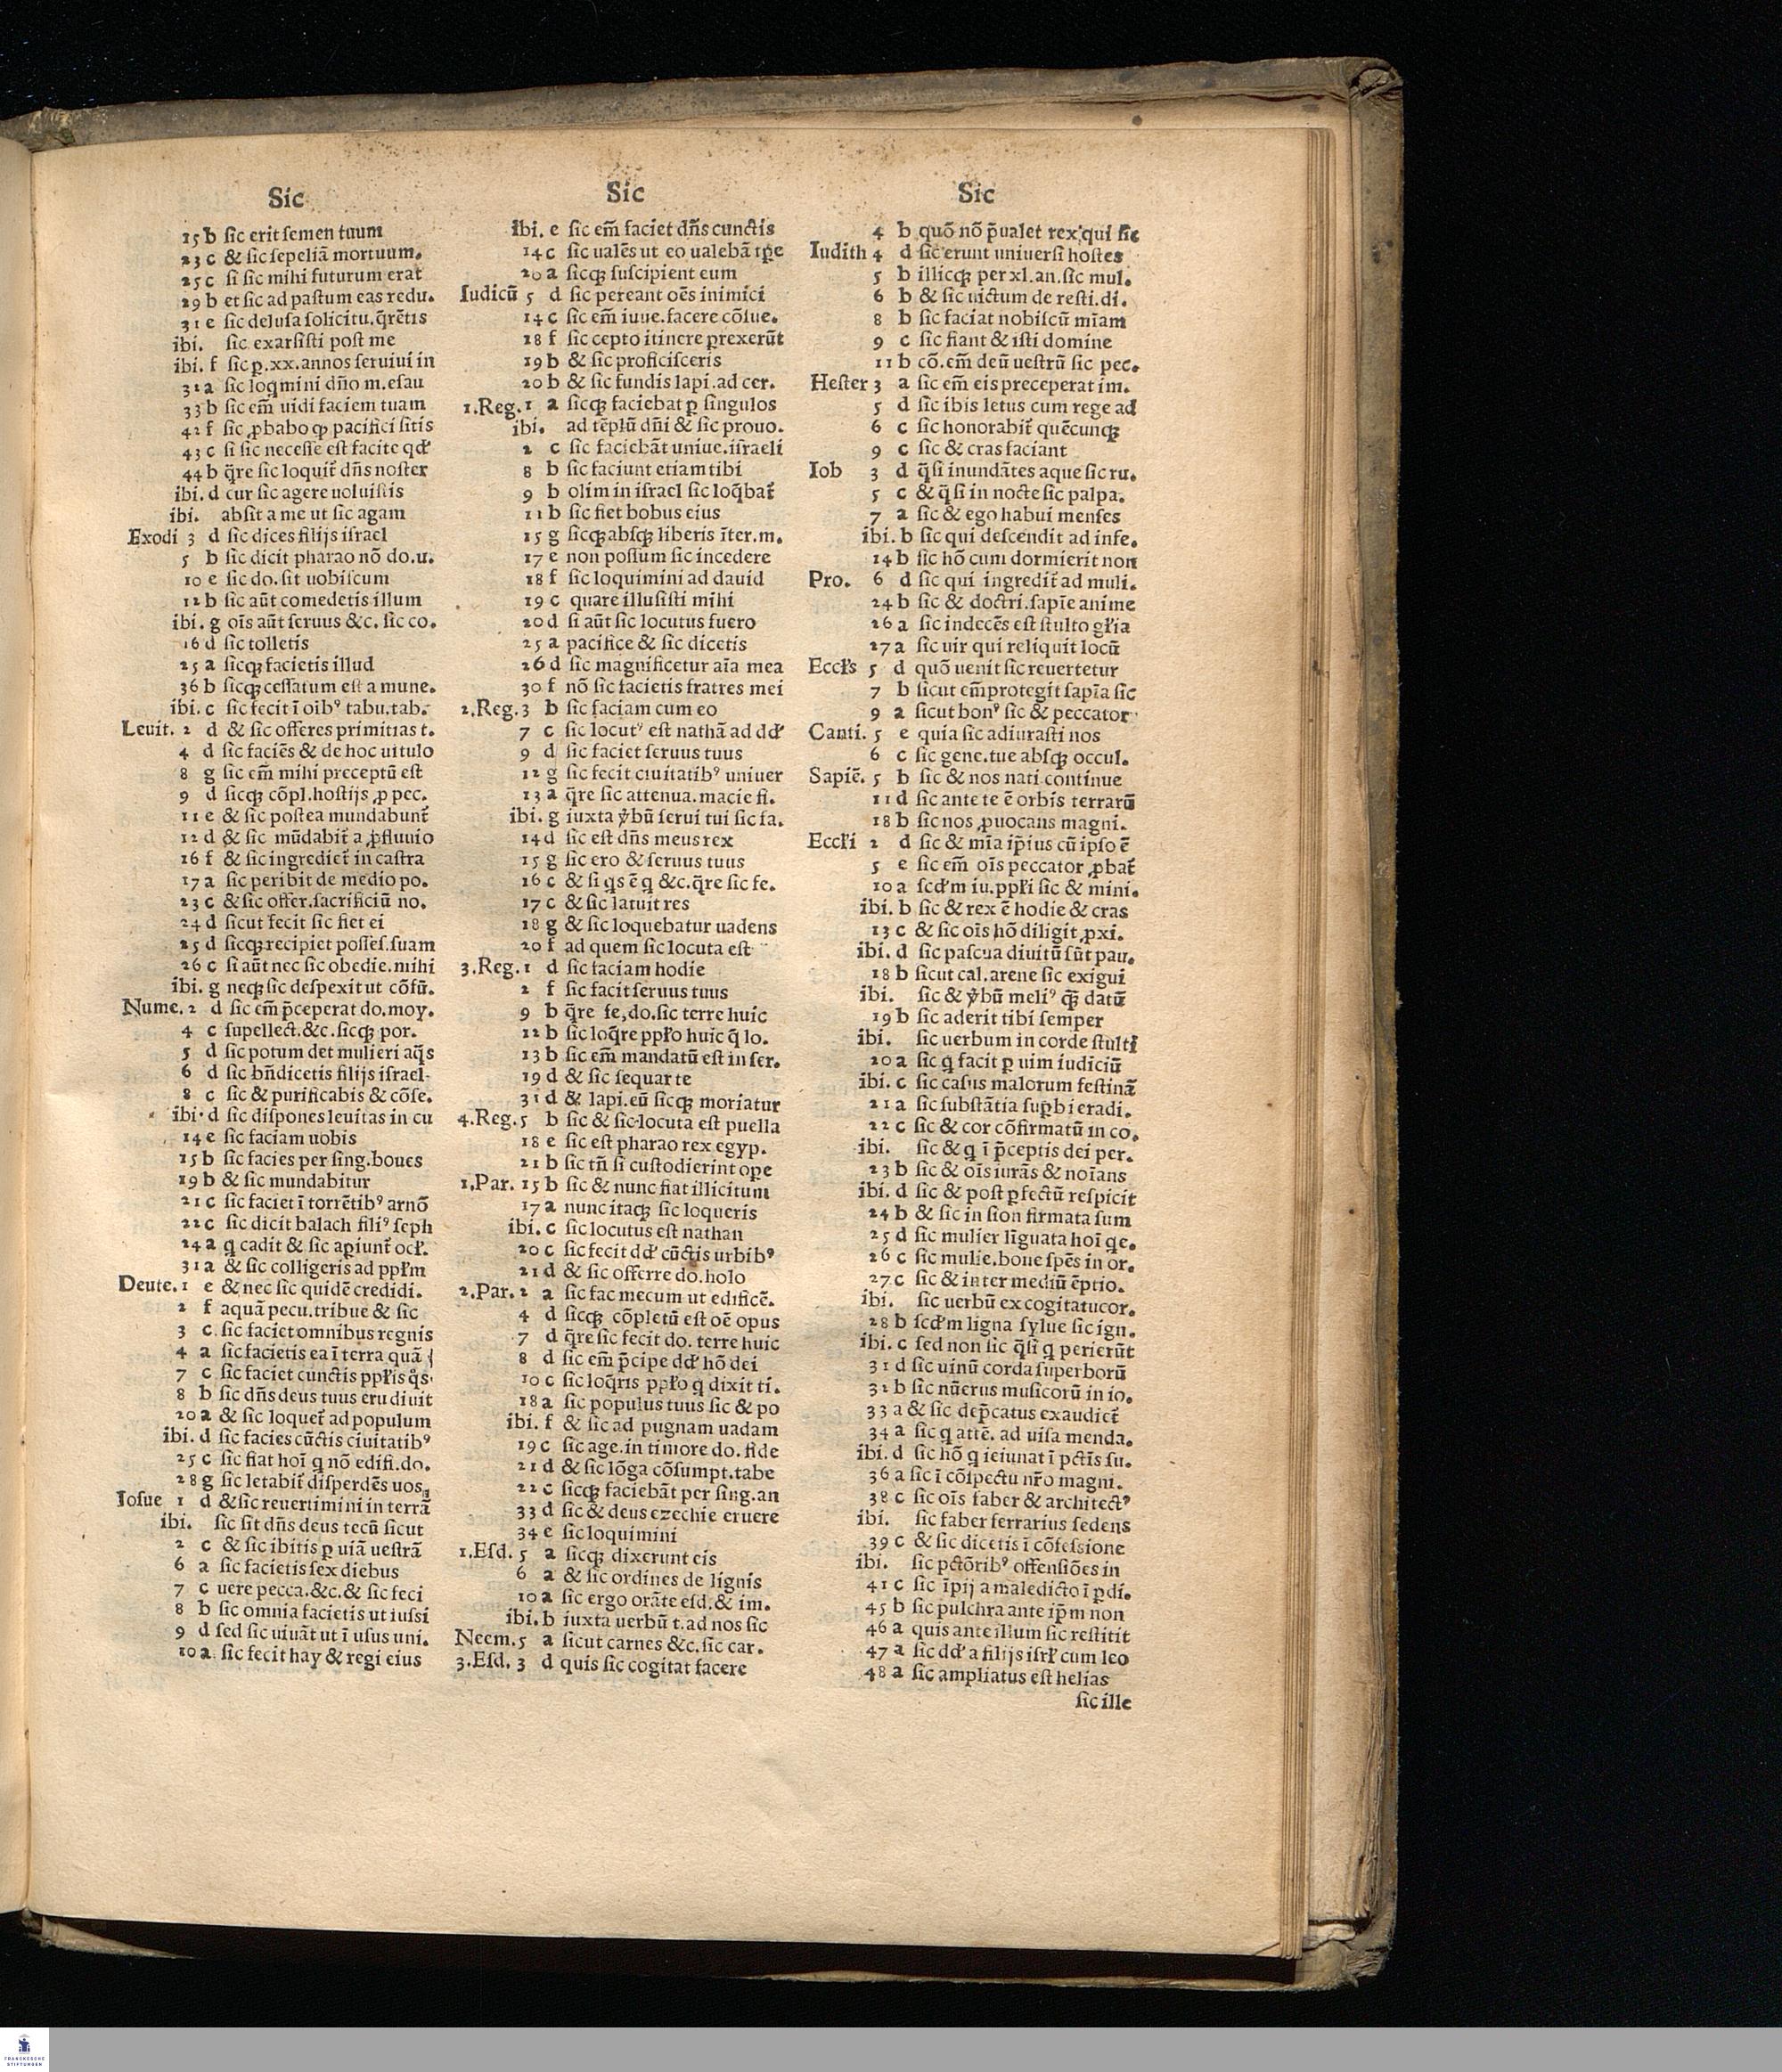 Sic
15 b ſic erit ſemen tuum
23 c & ſic ſepeliā mortuum.
25 c ſi ſic mihi futurum erat
29 b et ſic ad paſtum eas redu.
31 e ſic deluſa ſolicitu.q̄rētis
ibi. ſic exarſiſti poſt me
ibi. f ſic ꝑ.xx.annos ſeruiui in
32 a ſic loqmini dño m.eſau
33 b ſic em̄ uidi faciem tuam
42 f ſic ꝓbabo ꝙ pacifici ſitis
43 c ſi ſic neceſſe eſt facite qđ
44 b q̄re ſic loquit̄ dñs noſter
ibi. d cur ſic agere uoluiſtis
ibi. abſit a me ut ſic agam
Exodi 3 d ſic dices filijs iſrael
5 b ſic dicit pharao nō do.u.
10 e ſic do.ſit uobiſcum
12 b ſic aūt comedetis illum
ibi. g oīs aūt ſeruus &c. ſic co.
16 d ſic tolletis
25 a ſicqꝫ facietis illud
36 b ſicqꝫ ceſſatum eſt a mune.
ibi. c ſic fecit ī oībꝰ tabu.tab.
Leuit. 2 d & ſic offeres primitias t.
4 d ſic faciēs & de hoc uitulo
8 g ſic em̄ mihi preceptū eſt
9 d ſicqꝫ cōpl.hoſtijs ꝓ pec.
11 e & ſic poſtea mundabunt̄
12 d & ſic mūdabit̄ a ꝓfluuio
16 f & ſic ingrediet̄ in caſtra
17 a ſic peribit de medio po.
23 c & ſic offer.ſacrificiū no.
24 d ſicut fecit ſic fiet ei
25 d ſicqꝫ recipiet poſſeſ.ſuam
26 c ſi aūt nec ſic obedie.mihi
ibi. g neqꝫ ſic deſpexit ut cōſū.
Nume. 2 d ſic em̄ p̄ceperat do.moy.
4 c ſupellect.&c.ſicqꝫ por.
5 d ſic potum det mulieri aq̄s
6 d ſic bn̄dicetis filijs iſrael
8 c ſic & purificabis & cōſe.
ibi. d ſic diſpones leuitas in cu
14 e ſic faciam uobis
15 b ſic facies per ſing.boues
19 b & ſic mundabitur
21 c ſic faciet ī torrētibꝰ arnō
22 c ſic dicit balach filiꝰ ſeph
24 a q cadit & ſic aꝑiunt̄ ocł.
31 a & ſic colligeris ad ppłm
Deute. 1 e & nec ſic quidē credidi.
2 f aquā pecu.tribue & ſic
3 c ſic faciet omnibus regnis
4 a ſic facietis ea ī terra quā
7 c ſic faciet cunctis ppłis q̄s
8 b ſic dñs deus tuus erudiuit
20 a & ſic loquet̄ ad populum
ibi. d ſic facies cūctis ciuitatibꝰ
25 c ſic fiat hoī q nō edifi.do.
28 g ſic letabit̄ diſperdēs uos
Ioſue 1 d & ſic reuertimini in terrā
ibi. ſic ſit dñs deus tecū ſicut
2 c & ſic ibitis ꝑ uiā ueſtrā
6 a ſic facietis ſex diebus
7 c uere pecca.&c.& ſic feci
8 b ſic omnia facietis ut iuſſi
9 d ſed ſic uiuāt ut ī uſus uni.
10 a ſic fecit hay & regi eius
Sic
ibi. e ſic em̄ faciet dñs cunctis
14 c ſic ualēs ut eo ualebā tꝑe
20 a ſicqꝫ ſuſcipient eum
Iudicū 5 d ſic pereant oēs inimici
14 c ſic em̄ iuue.facere cōſue.
18 f ſic cepto itinere ꝑrexerūt
19 b & ſic proficiſceris
20 b & ſic fundis lapi.ad cer.
1.Reg. 1 a ſicqꝫ faciebat ꝑ ſingulos
ibi. ad tēplū dn̄i & ſic prouo.
2 c ſic faciebāt uniue.iſraeli
8 b ſic faciunt etiam tibi
9 b olim in iſrael ſic loq̄bat̄
11 b ſic fiet bobus eius
15 g ſicqꝫ abſqꝫ liberis īter.m.
17 e non poſſum ſic incedere
18 f ſic loquimini ad dauid
19 c quare illuſiſti mihi
20 d ſi aūt ſic locutus fuero
25 a pacifice & ſic dicetis
26 d ſic magnificetur aīa mea
30 f nō ſic facietis fratres mei
2.Reg. 3 b ſic faciam cum eo
7 c ſic locutꝰ eſt nathā ad dđ
9 d ſic faciet ſeruus tuus
12 g ſic fecit ciuitatibꝰ uniuer
13 a q̄re ſic attenua.macie fi.
ibi. g iuxta ỽbū ſerui tui ſic fa.
14 d ſic eſt dñs meus rex
15 g ſic ero & ſeruus tuus
16 c & ſi qs ē q &c.q̄re ſic fe.
17 c & ſic latuit res
18 g & ſic loquebatur uadens
20 f ad quem ſic locuta eſt
3.Reg. 1 d ſic faciam hodie
2 f ſic facit ſeruus tuus
9 b q̄re fe.do.ſic terre huic
12 b ſic loq̄re ppło huic q̄ lo.
13 b ſic em̄ mandatū eſt in ſer.
19 d & ſic ſequar te
31 d & lapi.eū ſicqꝫ moriatur
4.Reg. 5 b ſic & ſic locuta eſt puella
18 e ſic eſt pharao rex egyp.
21 b ſic tn̄ ſi cuſtodierint oꝑe
1.Par. 15 b ſic & nunc fiat illicitum
17 a nunc itaqꝫ ſic loqueris
ibi. c ſic locutus eſt nathan
20 c ſic fecit dđ cūctis urbibꝰ
21 d & ſic offerre do.holo
2.Par. 2 a ſic fac mecum ut edificē.
4 d ſicqꝫ cōpletū eſt oē opus
7 d q̄re ſic fecit do. terre huic
8 d ſic em̄ p̄cipe dđ hō dei
10 c ſic loq̄ris ppło q dixit ti.
18 a ſic populus tuus ſic & po
ibi. f & ſic ad pugnam uadam
19 c ſic age.in timore do. fide
21 d & ſic lōga cōſumpt.tabe
22 c ſicqꝫ faciebāt per ſing.an
33 d ſic & deus ezechie eruere
34 e ſic loquimini
1.Eſd. 5 a ſicqꝫ dixerunt eis
6 a & ſic ordines de lignis
10 a ſic ergo orāte eſd.& im.
ibi. b iuxta uerbū t.ad nos ſic
Neem. 5 a ſicut carnes &c.ſic car.
3.Eſd. 3 d quis ſic cogitat facere
Sic
4 b quō nō p̄ualet rex qui ſic
Iudith 4 d ſic erunt uniuerſi hoſtes
5 b illicqꝫ per xl.an.ſic mul.
6 b & ſic uictum de reſti.di.
8 b ſic faciat nobiſcū mīam
9 c ſic fiant & iſti domine
11 b cō.em̄ deū ueſtrū ſic pec.
Heſter 3 a ſic em̄ eis preceperat im.
5 d ſic ibis letus cum rege ad
6 c ſic honorabit̄ quēcunqꝫ
9 c ſic & cras faciant
Iob 3 d q̄ſi inundātes aque ſic ru.
5 c & q̄ſi in nocte ſic palpa.
7 a ſic & ego habui menſes
ibi. b ſic qui deſcendit ad infe.
14 b ſic hō cum dormierit non
Pro. 6 d ſic qui ingredit̄ ad muli.
24 b ſic & doctri.ſapīe anime
26 a ſic indecēs eſt ſtulto głia
27 a ſic uir qui reliquit locū
Eccłs 5 d quō uenit ſic reuertetur
7 b ſicut em̄ protegit ſapīa ſic
9 a ſicut bonꝰ ſic & peccator
Canti. 5 e quia ſic adiuraſti nos
6 c ſic gene.tue abſqꝫ occul.
Sapiē. 5 b ſic & nos nati continue
11 d ſic ante te ē orbis terrarū
18 b ſic nos ꝓuocans magni.
Eccłi 2 d ſic & mīa ip̄ius cū ipſo ē
5 e ſic em̄ oīs peccator ꝓbat̄
10 a ſcđm iu.ppłi ſic & mini.
ibi. b ſic & rex ē hodie & cras
13 c & ſic oīs hō diligit ꝓxi.
ibi. d ſic paſcua diuitū ſūt pau.
18 b ſicut cal.arene ſic exigui
ibi. ſic & ỽbū meliꝰ q̄ꝫ datū
19 b ſic aderit tibi ſemper
ibi. ſic uerbum in corde ſtulti
20 a ſic q facit ꝑ uim iudiciū
ibi. c ſic caſus malorum feſtinā
21 a ſic ſubſtātia ſuꝑbi eradi.
22 c ſic & cor cōfirmatū in co.
ibi. ſic & q ī p̄ceptis dei per.
23 b ſic & oīs iurās & noīans
ibi. d ſic & poſt ꝑfectū reſpicit
24 b & ſic in ſion firmata ſum
25 d ſic mulier līguata hoī qe.
26 c ſic mulie.bone ſpēs in or.
27 c ſic & inter mediū ēptio.
ibi. ſic uerbū ex cogitatu cor.
28 b ſcđm ligna ſylue ſic ign.
ibi. c ſed non ſic q̄ſi q perierūt
31 d ſic uinū corda ſuperborū
32 b ſic nūerus muſicorū in io.
33 a & ſic dep̄catus exaudiet̄
34 a ſic q attē. ad uiſa menda.
ibi. d ſic hō q ieiunat ī pctīs ſu.
36 a ſic ī cōſpectu nr̄o magni.
38 c ſic oīs faber & architectꝰ
ibi. ſic faber ferrarius ſedens
39 c & ſic dicetis ī cōfeſſione
ibi. ſic pctōribꝰ offenſiōes in
41 c ſic īpij a maledicto ī ꝑdi.
45 b ſic pulchra ante ip̄m non
46 a quis ante illum ſic reſtitit
47 a ſic dđ a filijs iſrł cum leo
48 a ſic ampliatus eſt helias
ſic ille
FRANCKESCHE
STIFTUNGEN